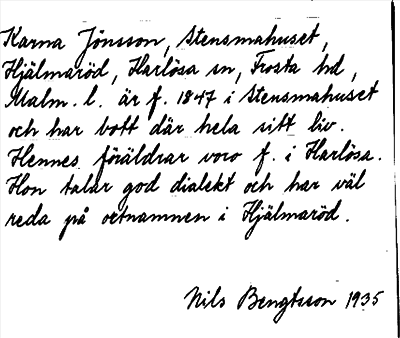 Karna Jönsson, Stensmahuset,
Hjälmaröd, Harlösa sn, Frosta hd,
Malm. l. är f. 1847 i Stensmahuset
och har bott där hela sitt liv.
Hennes föräldrar voro f. i Harlösa.
Hon talar god dialekt och har väl
reda på ortnamnen i Hjälmaröd.
Nils Bengtsson 1935